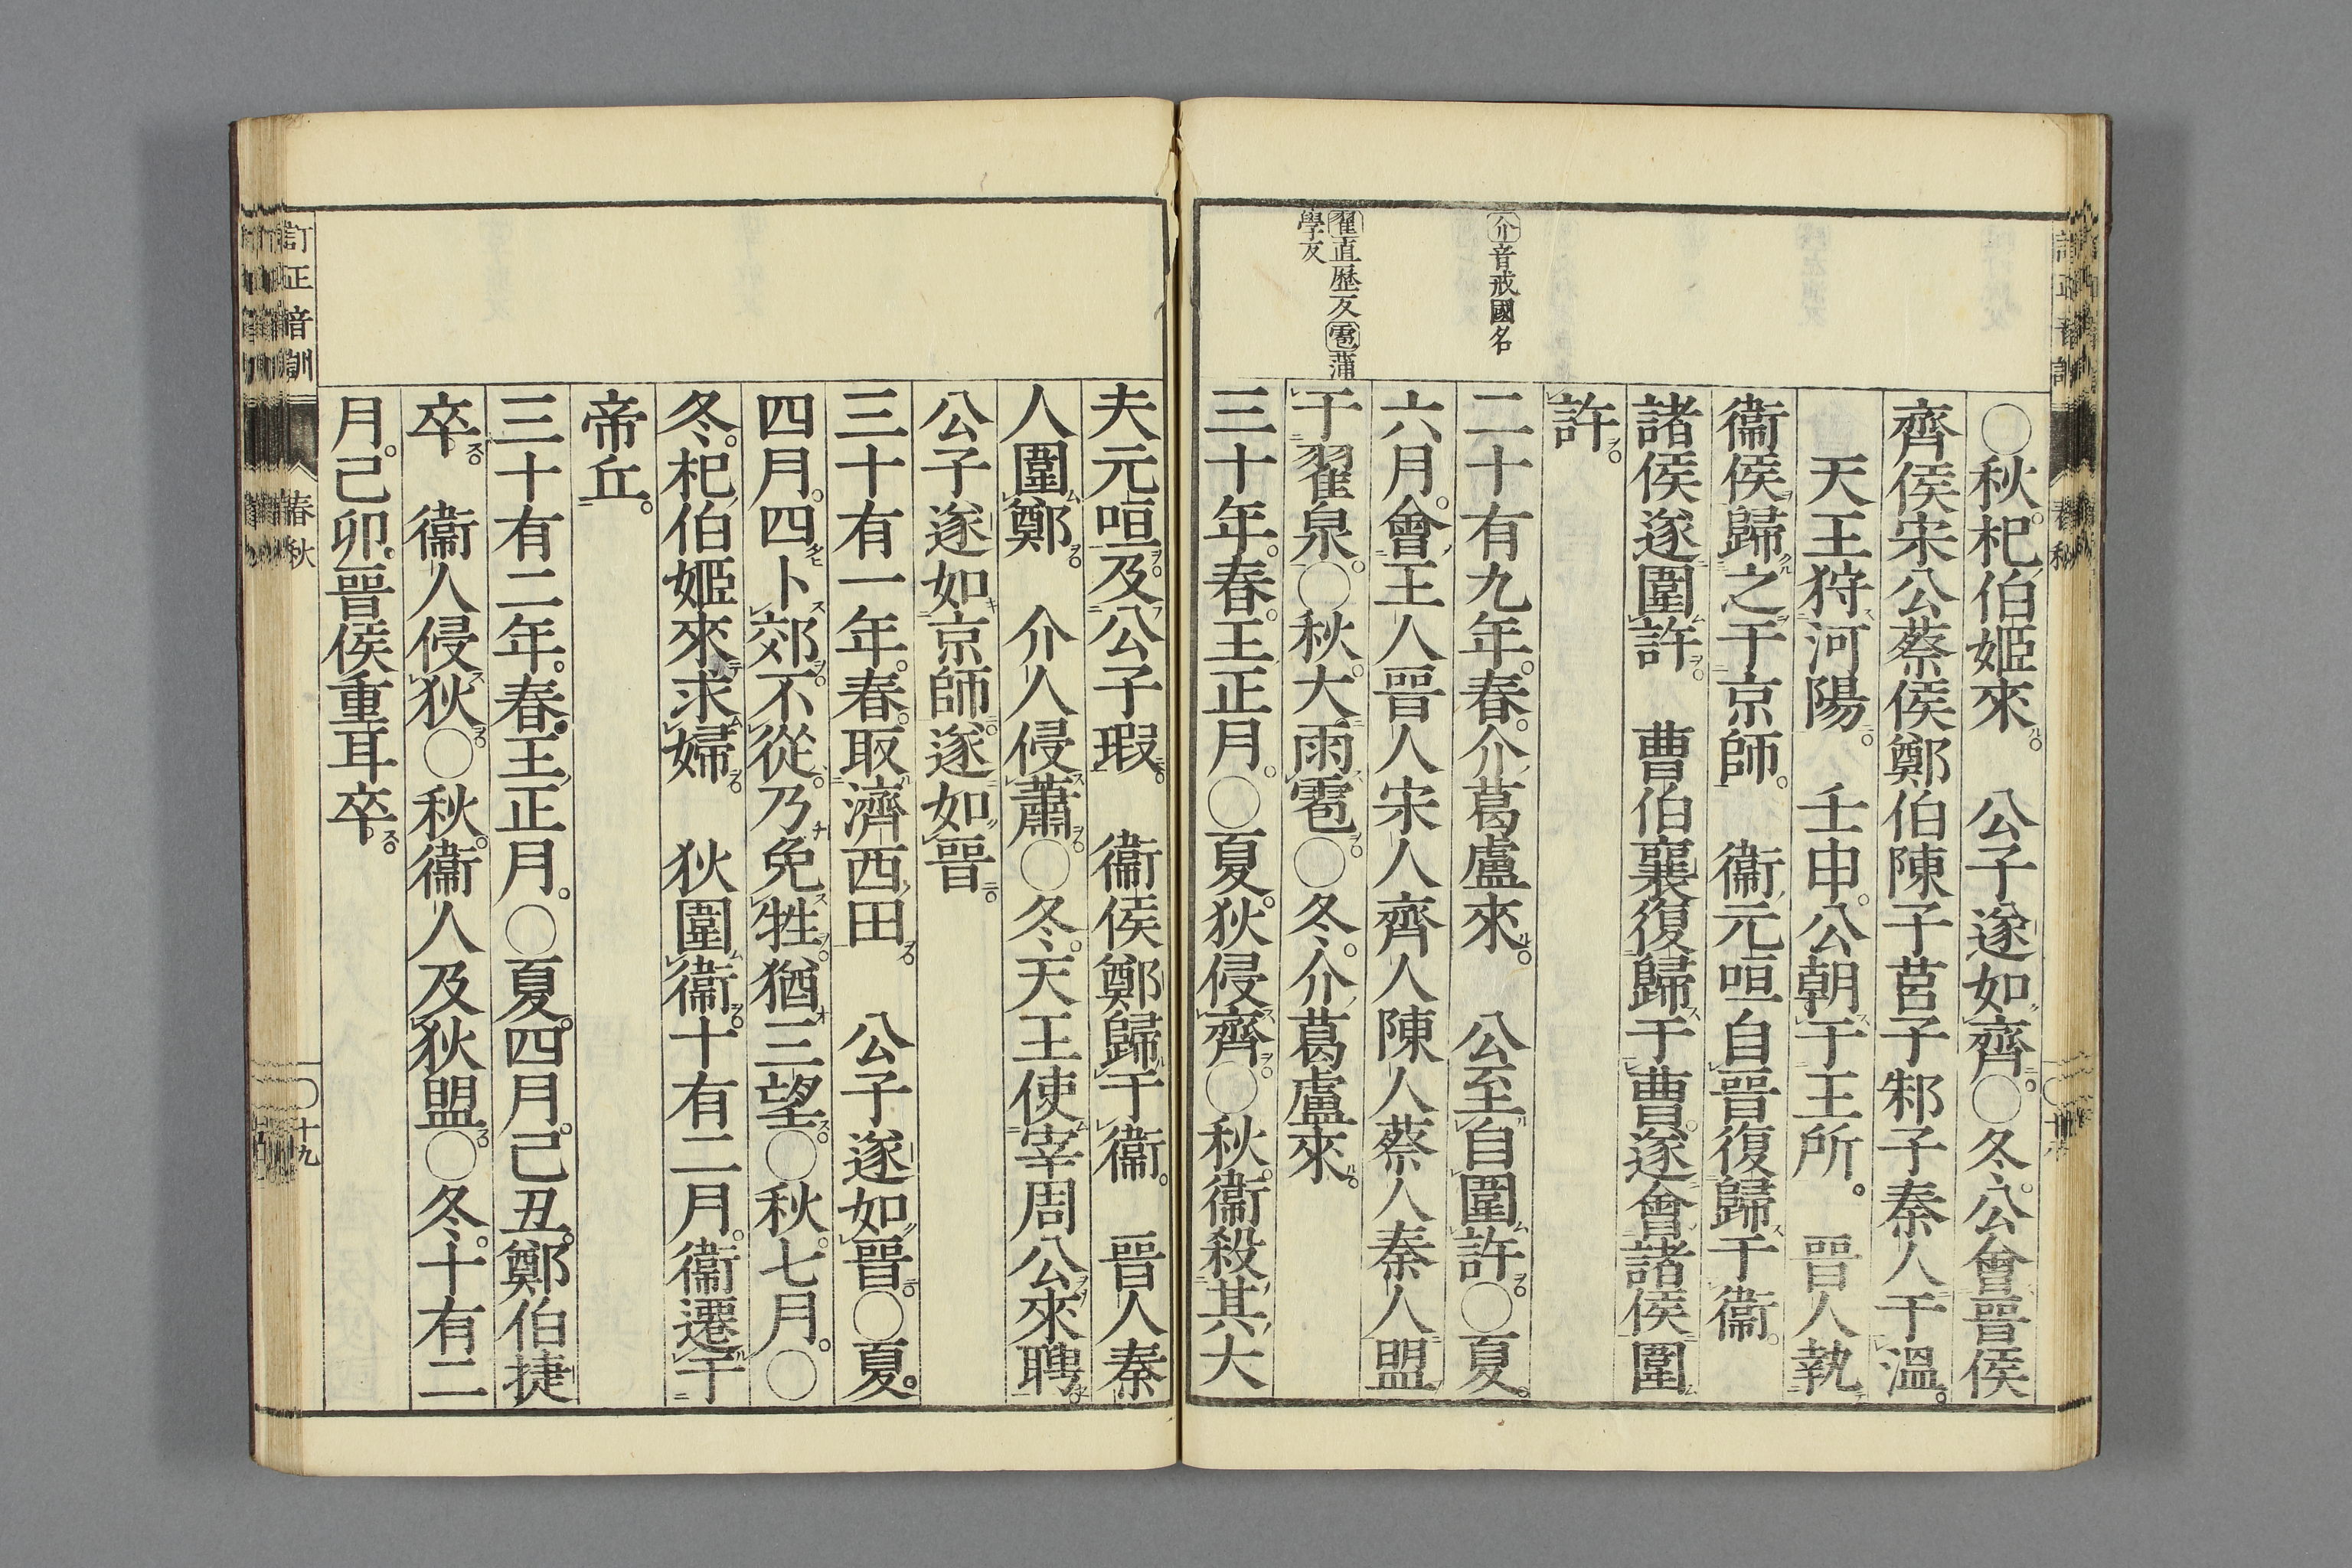 ○秋。杞伯姬來。　公子遂如齊。○冬。公會晉侯
齊侯宋公蔡侯鄭伯陳子莒子邾子秦人于溫。
天王狩河陽。　壬申。公朝于王所。　晉人執
衞侯歸之于京師。　衞元咺自晉復歸于衞。
諸侯遂圍許。　曹伯襄復歸于曹。遂會諸侯圍
許。
介音戒國名
二十有九年。春。介葛盧來。　公至自圍許。○夏。
六月。會王人晉人宋人齊人陳人蔡人秦人盟
翟直歷反雹蒲
學反
于翟泉。○秋。大雨雹。○冬。介葛盧來。
三十年。春。王正月。○夏。狄侵齊。○秋。衞殺其大
夫元咺及公子瑕。　衞侯鄭歸于衞。　晉人秦
人圍鄭。　介人侵蕭。○冬。天王使宰周公來聘。
公子遂如京師。遂如晉。
三十有一年。春。取濟西田。　公子遂如晉。○夏。
四月。四卜郊。不從。乃免牲。猶三望。○秋。七月。○
冬。杞伯姬來求婦。　狄圍衞。十有二月。衞遷于
帝丘。
三十有二年。春。王正月。○夏。四月。己丑。鄭伯捷
卒。　衞人侵狄。○秋。衞人及狄盟。○冬。十有二
月。己卯。晉侯重耳卒。
訂正音訓
春秋
○十九